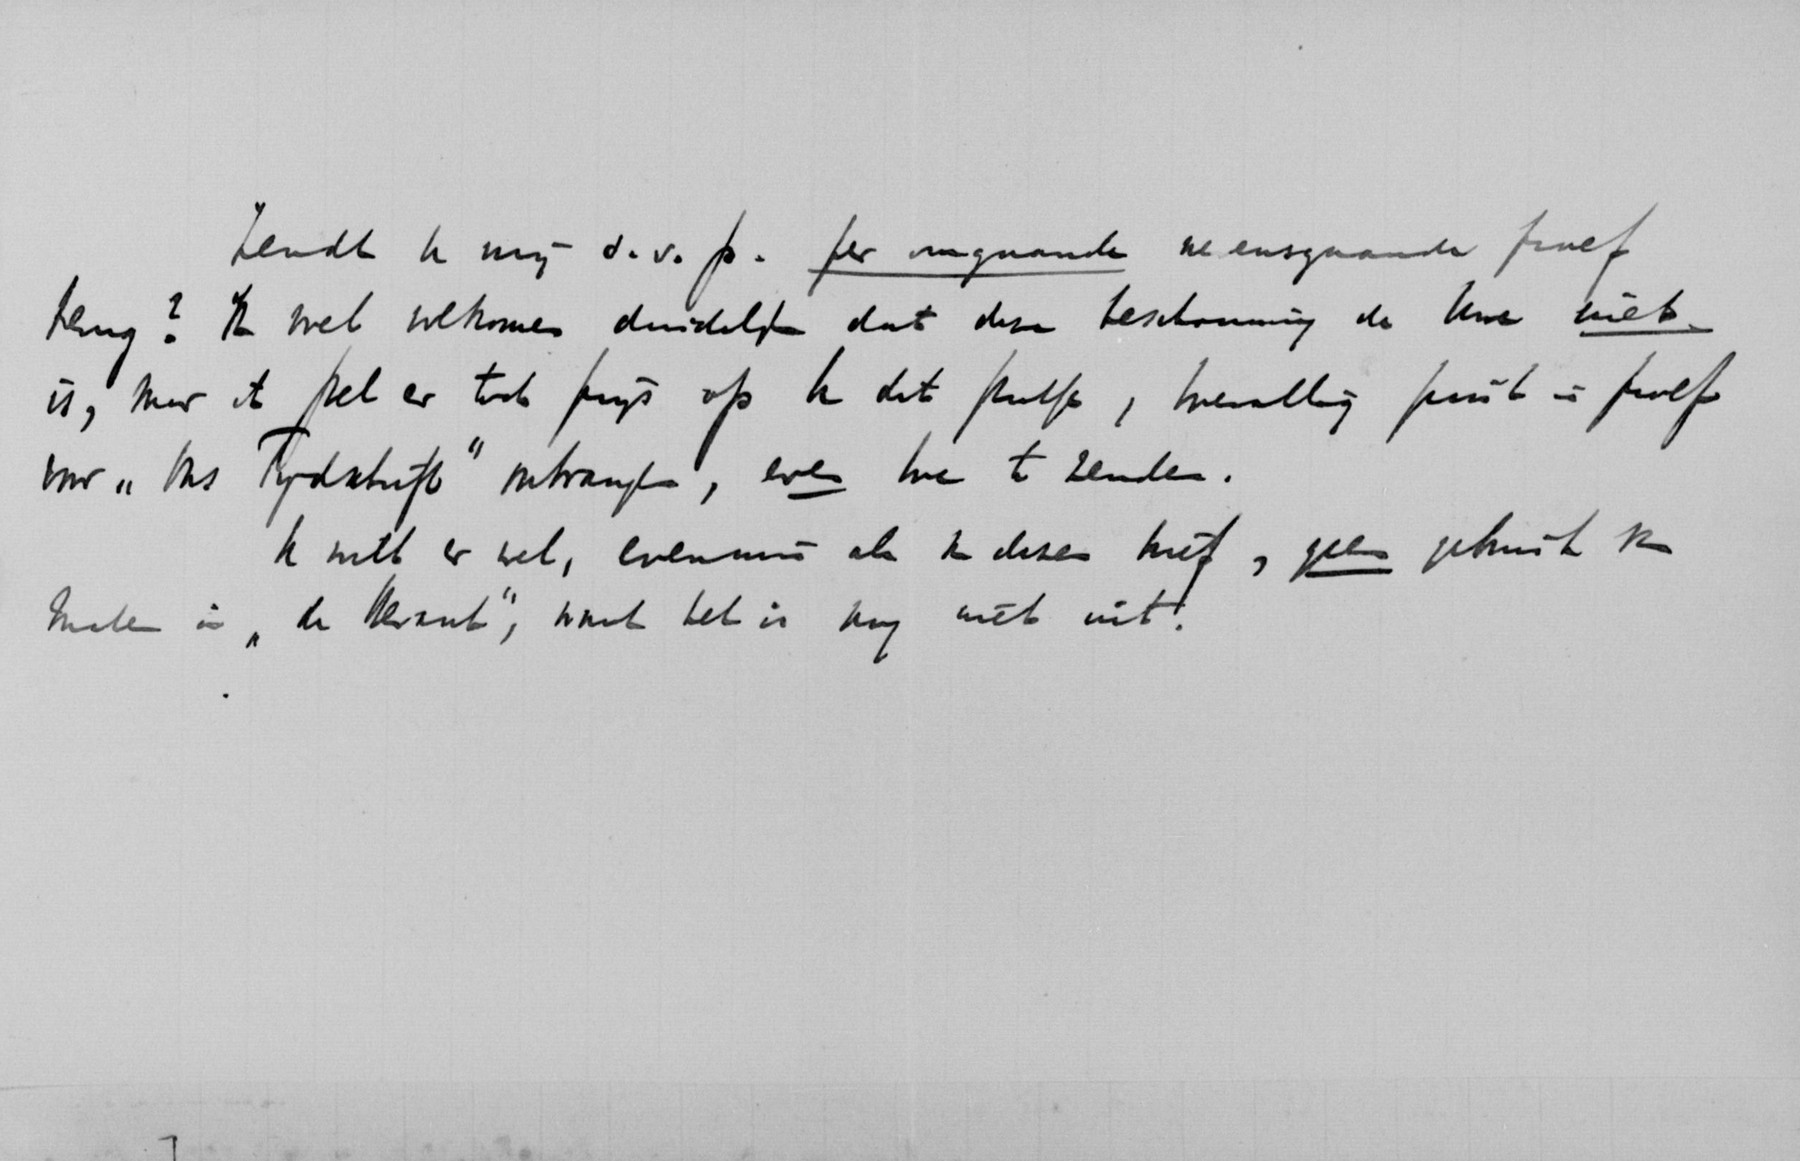 Zendt U mij s.v.p. per omgaande nevensgaande proef
terug? Ik weet volkomen duidelijk dat deze beschouwing de Uwe niet
is, maar ik stel er toch prijs op U dit stukje, toevallig juist in proef
voor „Ons Tijdschrift" ontvangen, even toe te zenden.
U wilt er wel, evenmin als van dezen brief, geen gebruik van
maken in „de Kroniek", want het is nog niet uit!